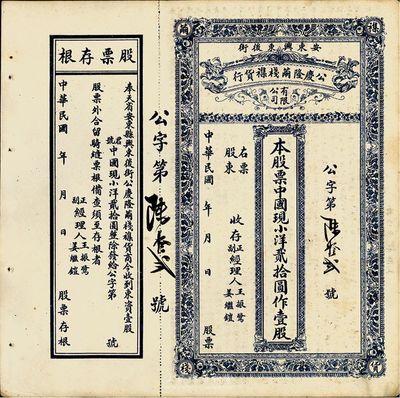 安東興東後街
公慶隆繭棧襍貨行
有限公司
公字第 號
本股票中國現小洋貳拾圓作壹股
右票 收存
股東
正經理人王振鷺
副 姜繼鎧
中華民國 年 月 日 股票
公字第 號
股票存根
奉天省安東縣興東後街公慶隆繭棧襍貨商今收到東資壹股
君號 中國現小洋貳拾圓整除發給公字第 號
股票外合留騎縫票根備查須至存根者
正經理人王振鷺
副 姜繼鎧
中華民國 年 月 日 股票存根